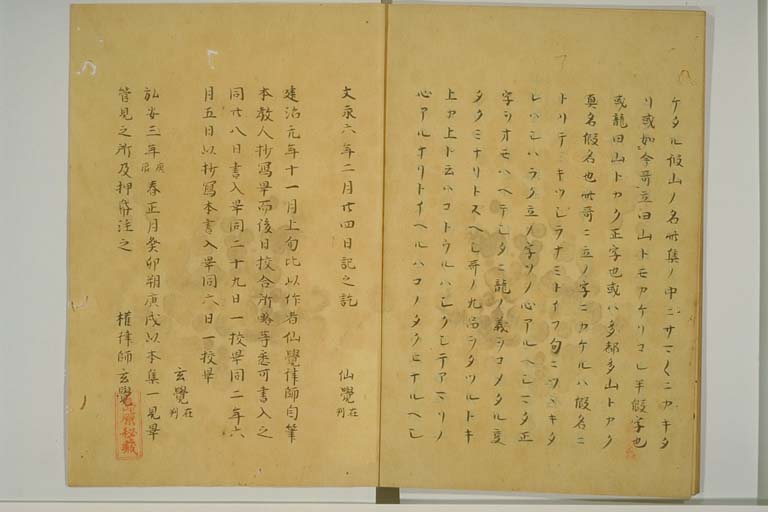 ケタル波山ノ名此集ノ中ニサマ〱ニカキタ
リ或如今哥立田山トモカケリコレ半假字也
或龍田山トカク正字也或ハ多都多山トカク
真名假名也此哥ニ立ノ字ニカケルハ假名ニ
トリテ
キツシラナミトイフ句ニツヽキタ
レハシハラク立ノ字ソノ心アルヘシマタ正
字ヲオモハヘテシタニ龍ノ義ヲコメタル
タクミナリトスヘシ
上カ上ト云ハコトウルハシクシテアマリノ
心アルナリトイヘルハコノタクヒナルヘシ
文永六年二月廿四日記之訖
仙覺在判
建治元年十一月上旬比以作者仙覺律師自筆
本教人抄寫畢而後日校合所略等悉可書入之
同廿八日書入畢同二十九日一校畢同二年六
月五日以抄寫本書入畢同六日一校畢
玄覺在判
弘安三年庚辰春正月癸卯朔庚戌以本集一見畢
管見之所及押帋注之
權律師玄覺